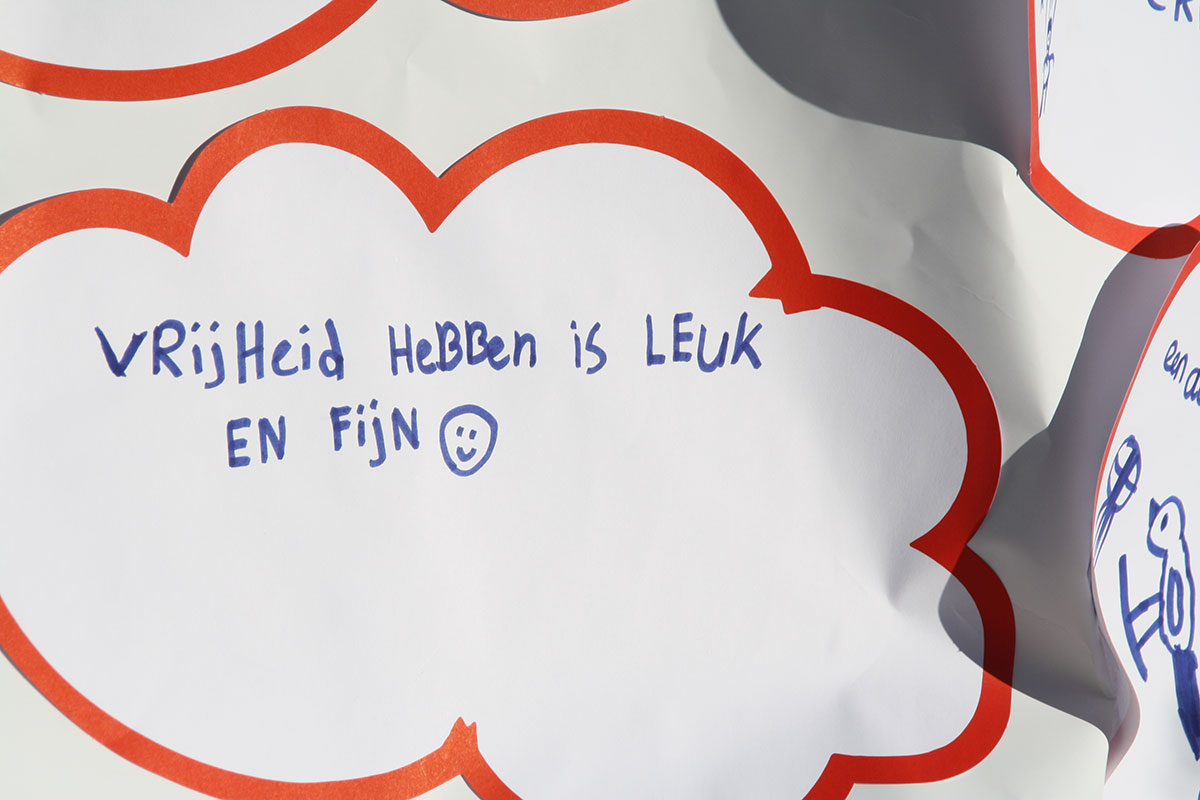 VRijHeid HeBBen is LEUK
EN FijN
een